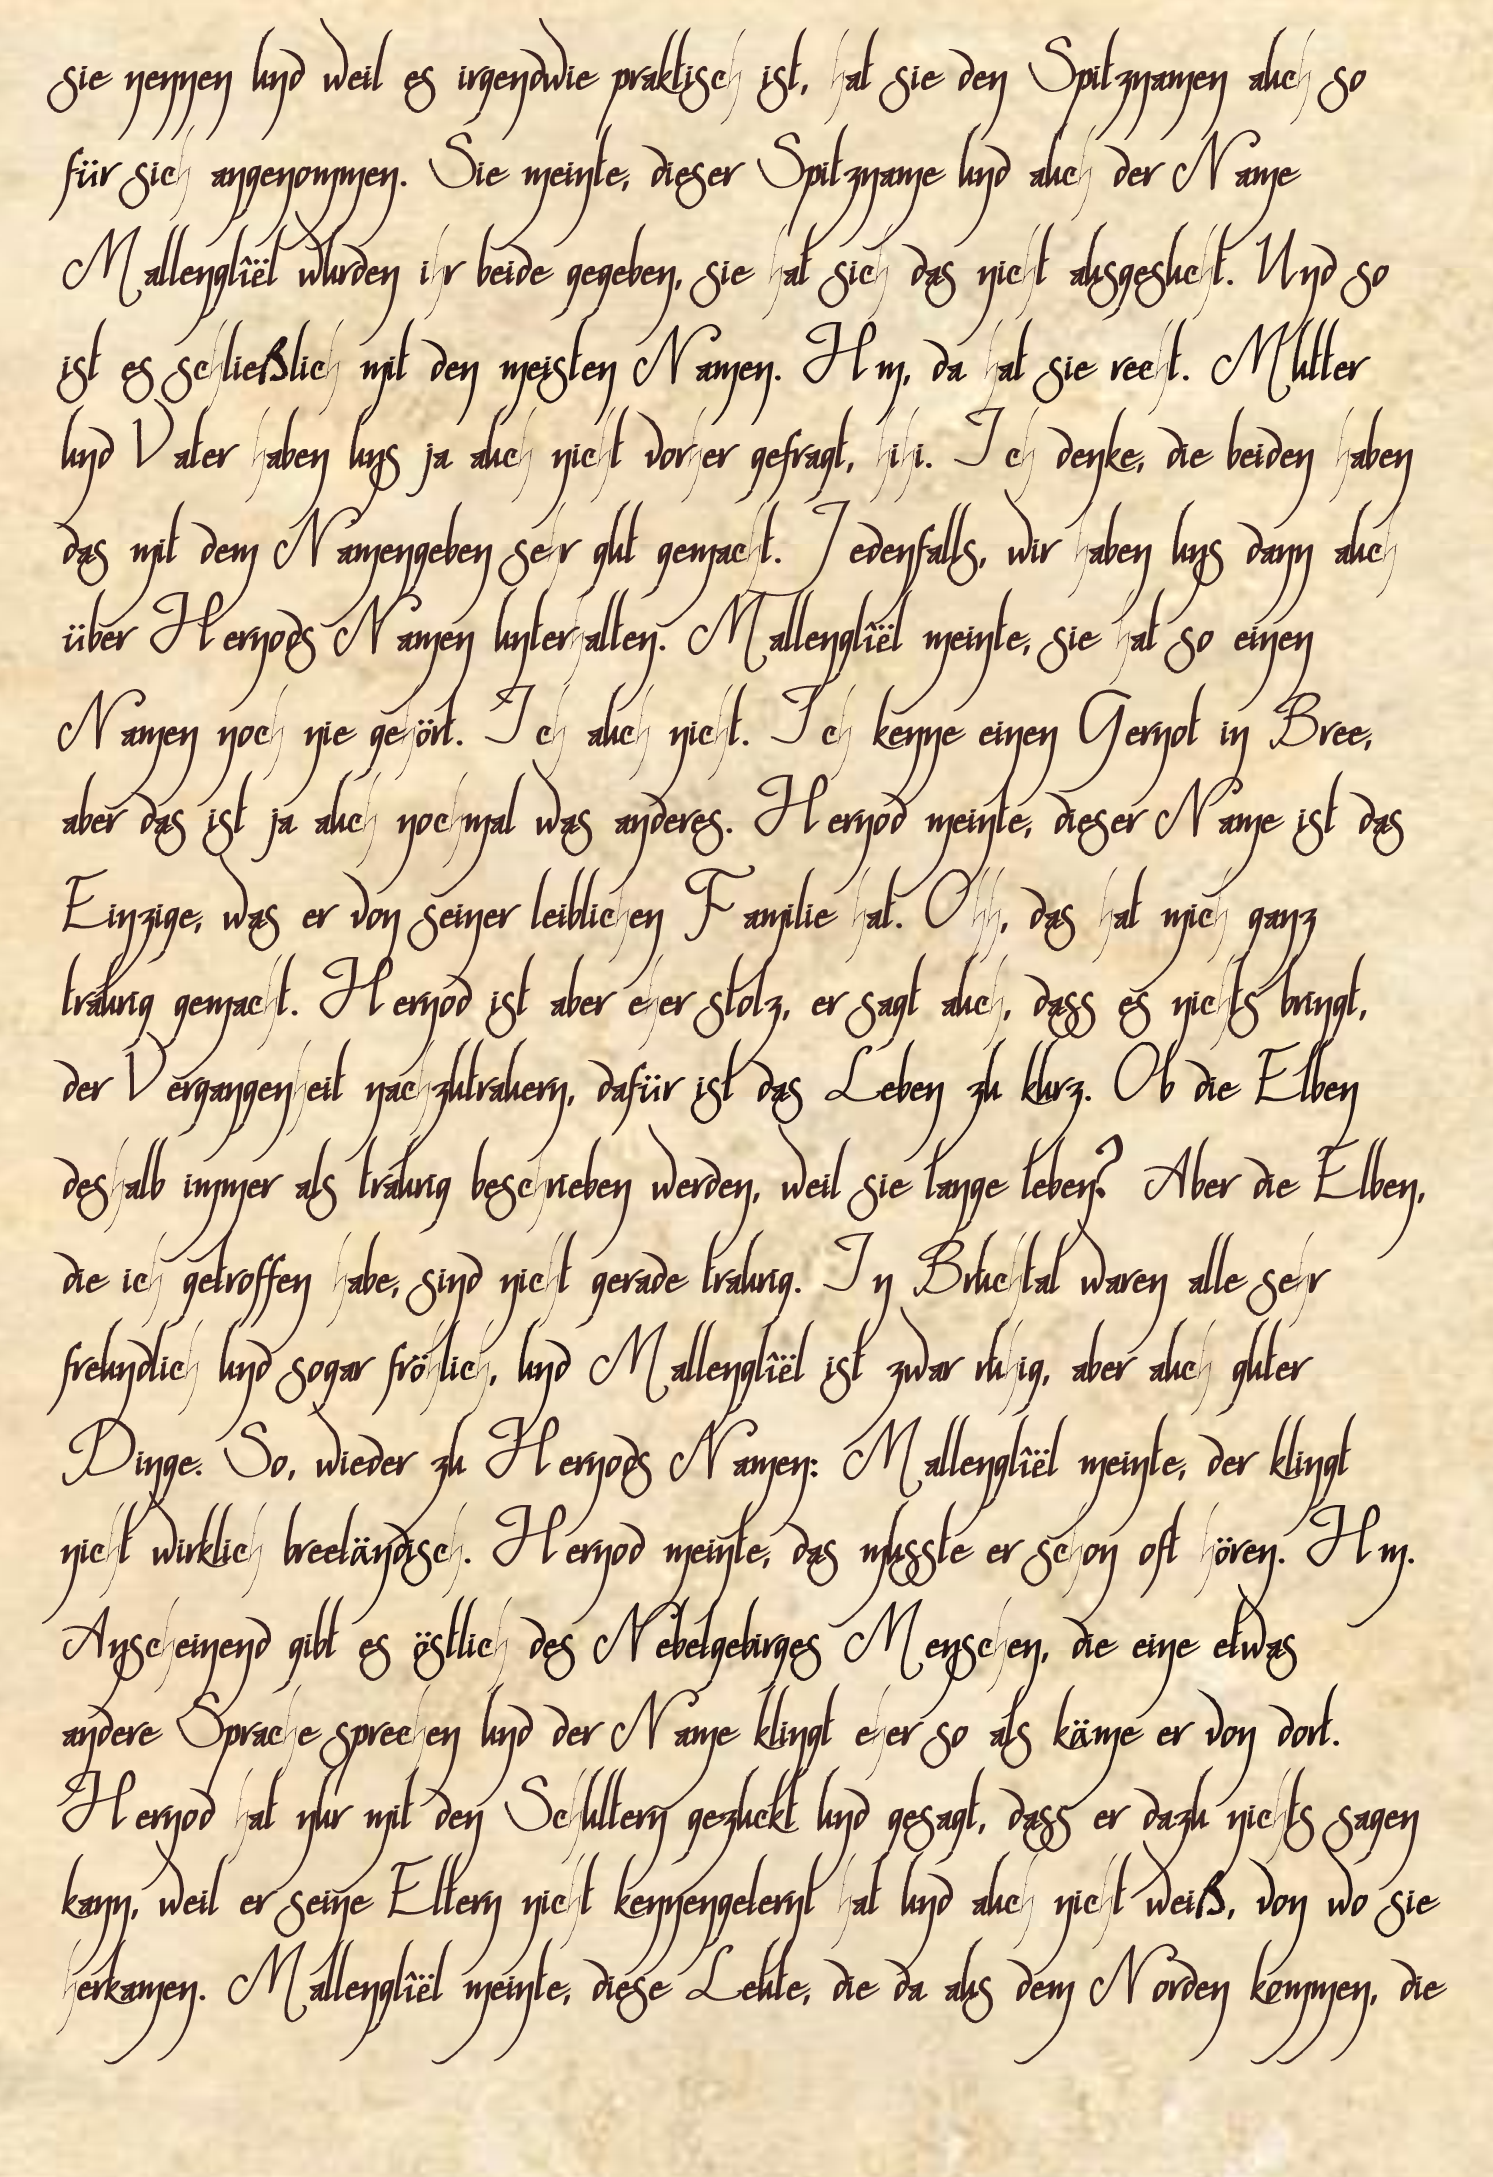 sie nennen und weil es irgendwie praktisch ist, hat sie den Spitznamen auch so
für sich angenommen. Sie meinte, dieser Spitzname und auch der Name
Mallenglîël wurden ihr beide gegeben, sie hat sich das nicht ausgesucht. Und so
ist es schließlich mit den meisten Namen. Hm, da hat sie recht. Mutter
und Vater haben uns ja auch nicht vorher gefragt, hihi. Ich denke, die beiden haben
das mit dem Namengeben sehr gut gemacht. Jedenfalls, wir haben uns dann auch
über Hernods Namen unterhalten. Mallenglîël meinte, sie hat so einen
Namen noch nie gehört. Ich auch nicht. Ich kenne einen Gernot in Bree,
aber das ist ja auch nochmal was anderes. Hernod meinte, dieser Name ist das
Einzige, was er von seiner leiblichen Familie hat. Ohh, das hat mich ganz
traurig gemacht. Hernod ist aber eher stolz, er sagt auch, dass es nichts bringt,
der Vergangenheit nachzutrauern, dafür ist das Leben zu kurz. Ob die Elben
deshalb immer als traurig beschrieben werden, weil sie lange leben? Aber die Elben,
die ich getroffen habe, sind nicht gerade traurig. In Bruchtal waren alle sehr
freundlich und sogar fröhlich, und Mallenglîël ist zwar ruhig, aber auch guter
Dinge. So, wieder zu Hernods Namen: Mallenglîël meinte, der klingt
nicht wirklich breeländisch. Hernod meinte, das musste er schon oft hören. Hm.
Anscheinend gibt es östlich des Nebelgebirges Menschen, die eine etwas
andere Sprache sprechen und der Name klingt eher so als käme er von dort.
Hernod hat nur mit den Schultern gezuckt und gesagt, dass er dazu nichts sagen
kann, weil er seine Eltern nicht kennengelernt hat und auch nicht weiß, von wo sie
herkamen. Mallenglîël meinte, diese Leute, die da aus dem Norden kommen, die